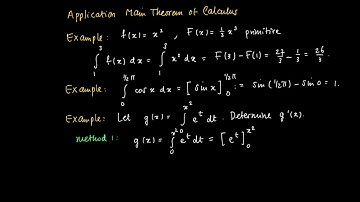 Application Main Theorem of Calculus
Example: f(x) = x², F(x) = ⅓x³ primitive
∫₁³ f(x) dx = ∫₁³ x² dx = F(3) - F(1) = 27/3 - 1/3 = 26/3.
Example: ∫₀^{½π} cos x dx = [sin x]₀^{½π} = sin(½π) - sin 0 = 1.
Example: Let g(x) = ∫₀^{x²} eᵗ dt. Determine g'(x).
method 1: g(x) = ∫₀^{x²} eᵗ dt = [eᵗ]₀^{x²}